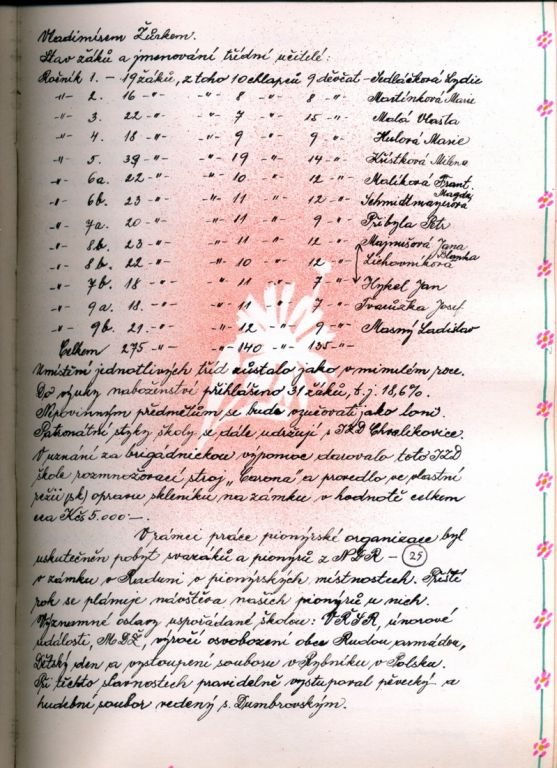 Vladimírem Žůrkem.
Stav žáků a jmenování třídní učitelé:
Ročník 1. - 19 žáků, z toho 10 chlapců 9 děvčat - Sedláčková Lydie
-"- 2. 16 -"- -"- 8 -"- 8 -"- Martínková Marie
-"- 3. 22 -"- -"- 7 -"- 15 -"- Malá Vlasta
-"- 4. 18 -"- -"- 9 -"- 9 -"- Hulová Marie
-"- 5. 39 -"- -"- 19 -"- 14 -"- Křístková Milena
-"- 6a. 22 -"- -"- 10 -"- 12 -"- Malíková Frant.
-"- 6b. 23 -"- -"- 11 -"- 12 -"- Schmidtmayerová Magda
-"- 7a. 20 -"- -"- 11 -"- 9 -"- Přibyla Petr
-"- 8b. 23 -"- -"- 11 -"- 12 -"- Majnušová Jana
-"- 8b. 22 -"- -"- 10 -"- 12 -"- Lichovníková Blanka
-"- 7b. 18 -"- -"- 11 -"- 7 -"- Hykel Jan
-"- 9a. 18. -"- -"- 11 -"- 7 -"- Ivančuzka Josef
-"- 9b. 21 -"- -"- 12 -"- 9 -"- Masný Ladislav
Celkem 275 -"- 140 -"- 135 -"-
Umístění jednotlivých tříd zůstalo jako v minulém roce.
Do výuky náboženství přihlášeno 31 žáků, t.j. 18,6%.
Nepovinným předmětům se bude vyučovati jako loni.
Patronátní styky školy se dále udržují s JZD Chvalíkovice.
V uznání za brigádnickou výpomoc darovalo toto JZD
škole rozmnožovací stroj „Carona" a provedlo ve vlastní
režii (sk) opravu skleníků na zámku v hodnotě celkem
cca Kčs 5.000.-
V rámci práce pionýrské organizace byl
uskutečněn pobyt svazáků a pionýrů z NDR - 25
v zámku v Raduni v pionýrských místnostech. Příští
rok se plánuje návštěva našich pionýrů u nich.
Významné oslavy uspořádané školou: VŘSR, únorové
události, MDŽ, výročí osvobození obce Rudou armádou,
Dětský den a vystoupení souboru v Rybníku v Polsku.
Při těchto slavnostech pravidelně vystupoval pěvecký a
hudební soubor vedený s. Dumbrovským.